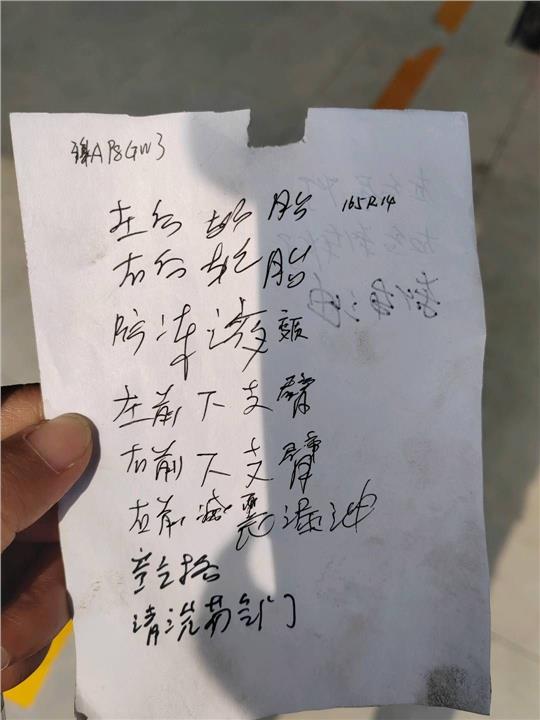 左后轮胎 165R14
右后轮胎
防冻液
左前下支臂
右前下支臂
左前减震漏油
空气格
清洗节气门